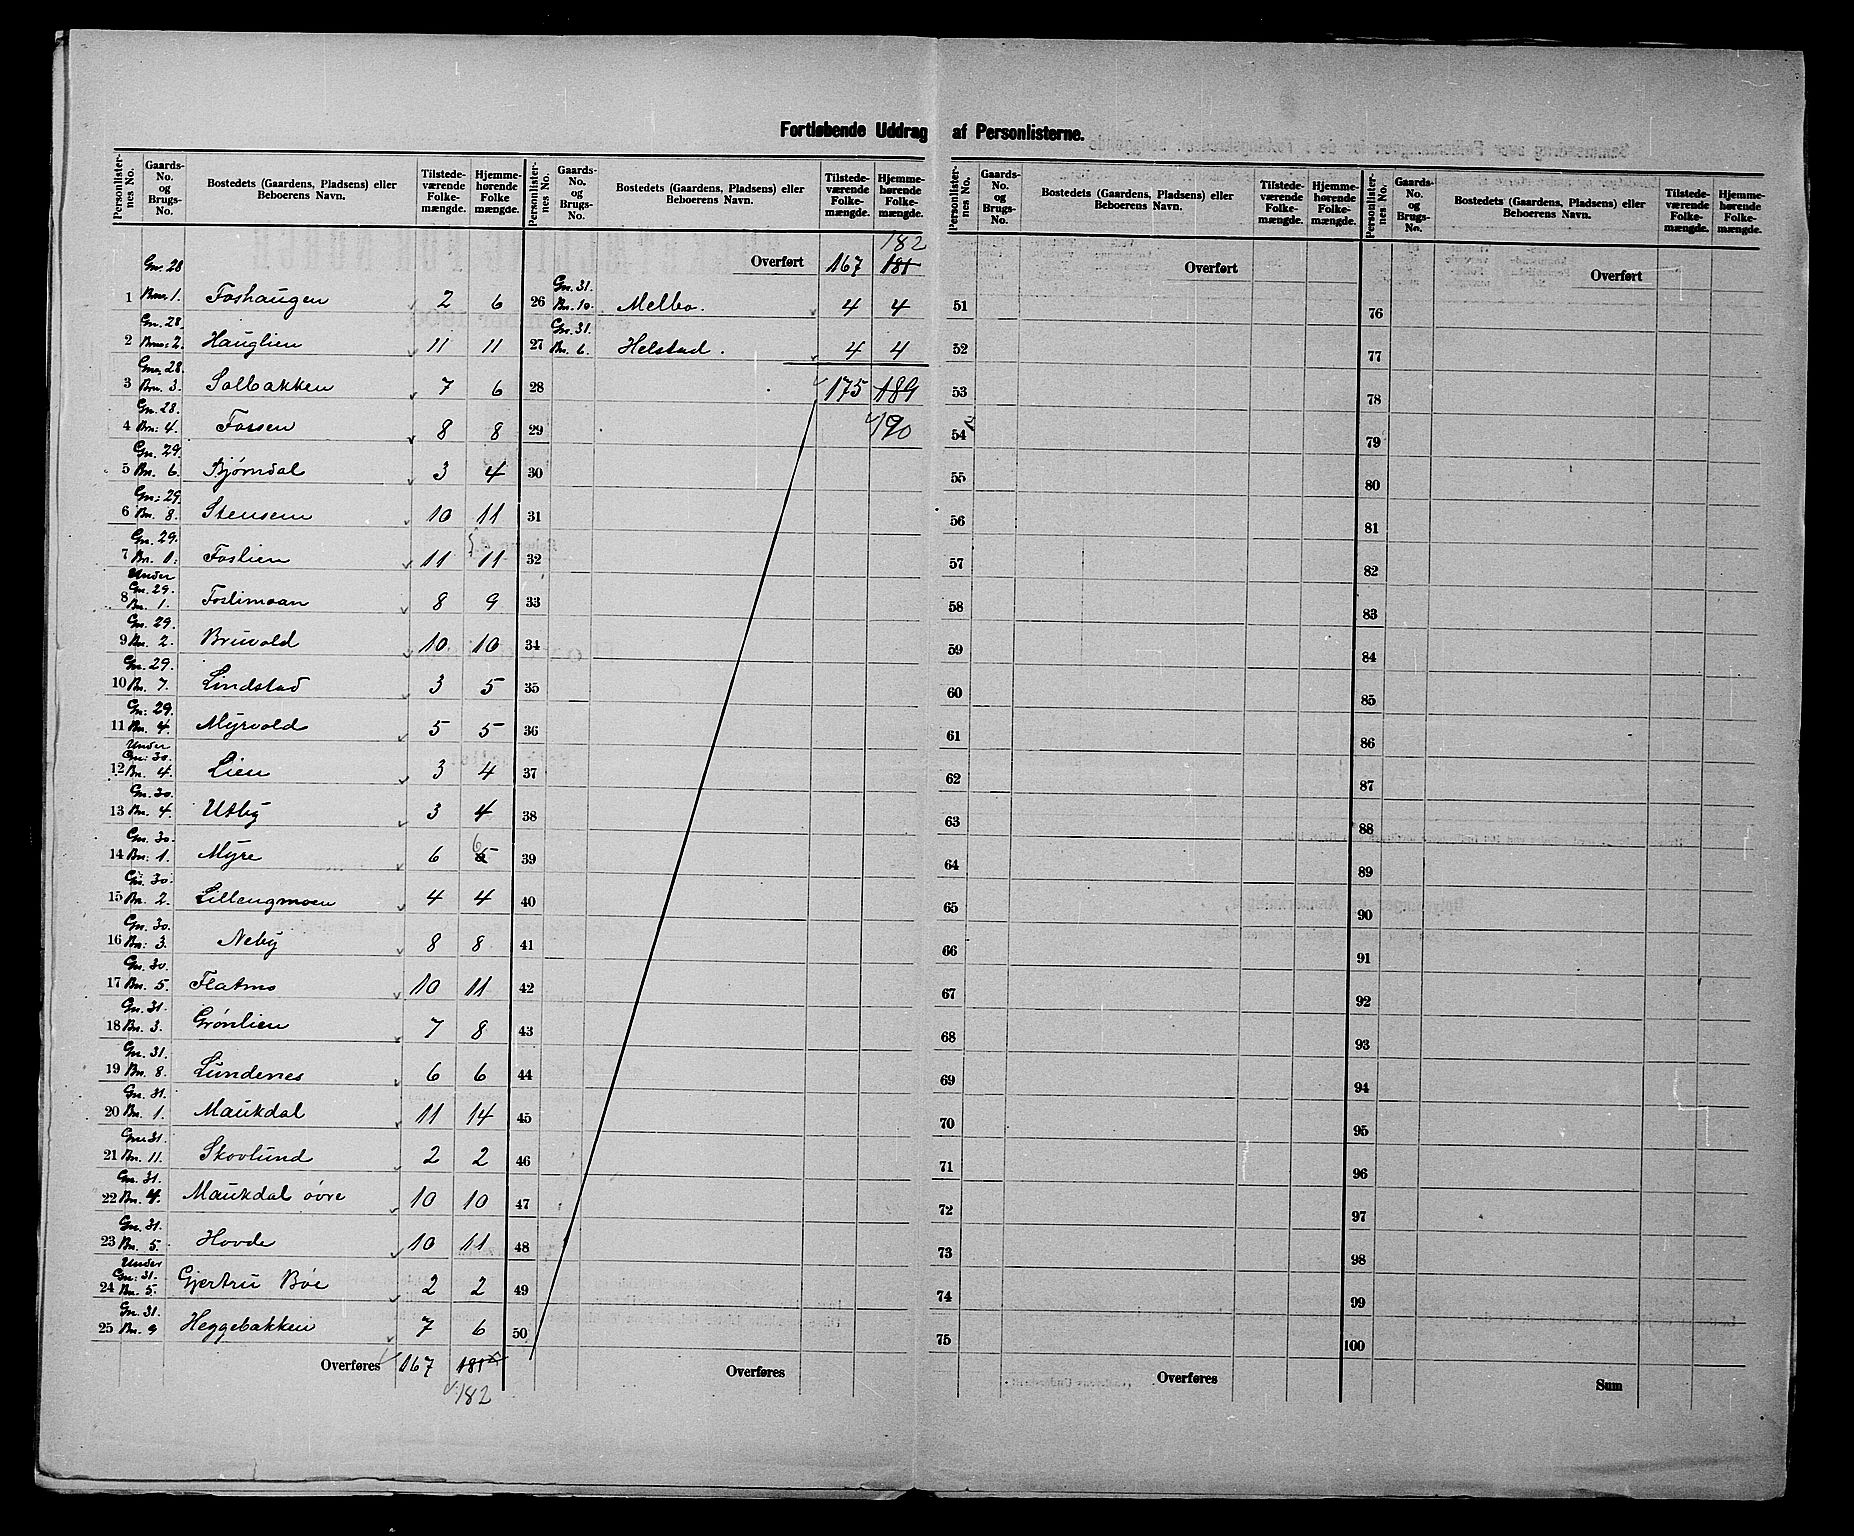 Fortløbende Uddrag af Personlisterne.
Personlister-nes No. Gaards-No. og Brugs-No. Bostedets (Gaardens, Pladsens) eller Beboerens Navn. Tilstede-værende Folke-mængde. Hjemme-hørende Folke mængde.
Gn. 28
1 Bn. 1. Foshaugen 2 6
Gn. 28.
2 Bn: 2. Hauglien 11 11
Gn. 28.
3 Bn. 3. Solbakken 7 6
Gn. 28.
4 Bn: 4. Fossen 8 8
Gn. 29.
5 Bn. 6. Bjørndal 3 4
Gn: 29.
6 Bn. 8. Stensem 10 11
Gn. 29.
7 Bn. 1: Foslien 11 11
Under
Gn. 29.
8 Bn. 1. Foslimoan 8 9
Gn. 29.
9 Bn. 2. Bruvold 10 10
Gn. 29.
10 Bn. 7. Lindstad 3 5
Gn: 29.
11 Bn. 4. Myrvold 5 5
Under
Gn: 30.
12 Bn. 4. Lien 3 4
Gn. 30.
13 Bn. 4. Utby 3 4
Gn. 30.
14 Bn: 1. Myre 6 6
Gn. 30.
15 Bn. 2. Lillengmoen 4 4
Gn. 30.
16 Bn: 3. Neby 8 8
Gn. 30.
17 Bn. 5. Flatmo 10 11
Gn. 31.
18 Bn. 3. Grønlien 7 8
Gn. 31.
19 Bn. 8. Lundenes 6 6
Gn. 31.
20 Bn. 1. Maukdal 11 14
Gn. 31.
21 Bn. 11. Skovlund 2 2
Gn. 31.
22 Bn. 4. Maukdal øvre 10 10
Gn. 31.
23 Bn. 5. Hovde 10 11
Under
Gn: 31.
24 Bn. 5. Gjertru Bøe 2 2
Gn. 31.
25 Bn. 9 Heggebakken 7 6
Overføres 167 181
182
Personlister-nes No. Gaards-No. og Brugs-No. Bostedets (Gaardens, Pladsens) eller Beboerens Navn. Tilstede-værende Folke-mængde. Hjemme-hørende Folke-mængde.
182
Overført 167 181
Gn. 31.
26 Bn. 10. Melbo. 4 4
Gn. 31.
27 Bn. 6. Helstad. 4 4
28 175 189
29 190
30
31
32
33
34
35
36
37
38
39
40
41
42
43
44
45
46
47
48
49
50
Overføres
Personlister-nes No. Gaards-No. og Brugs-No. Bostedets (Gaardens, Pladsens) eller Beboerens Navn. Tilstede-værende Folke-mængde. Hjemme-hørende Folke-mængde.
Overført
51
52
53
54
55
56
57
58
59
60
61
62
63
64
65
66
67
68
69
70
71
72
73
74
75
Overføres
Personlister-nes No. Gaards-No. og Brugs-No. Bostedets (Gaardens, Pladsens) eller Beboerens Navn. Tilstede-værende Folke-mængde. Hjemme-hørende Folke-mængde.
Overført
76
77
78
79
80
81
82
83
84
85
86
87
88
89
90
91
92
93
94
95
96
97
98
99
100
Sum